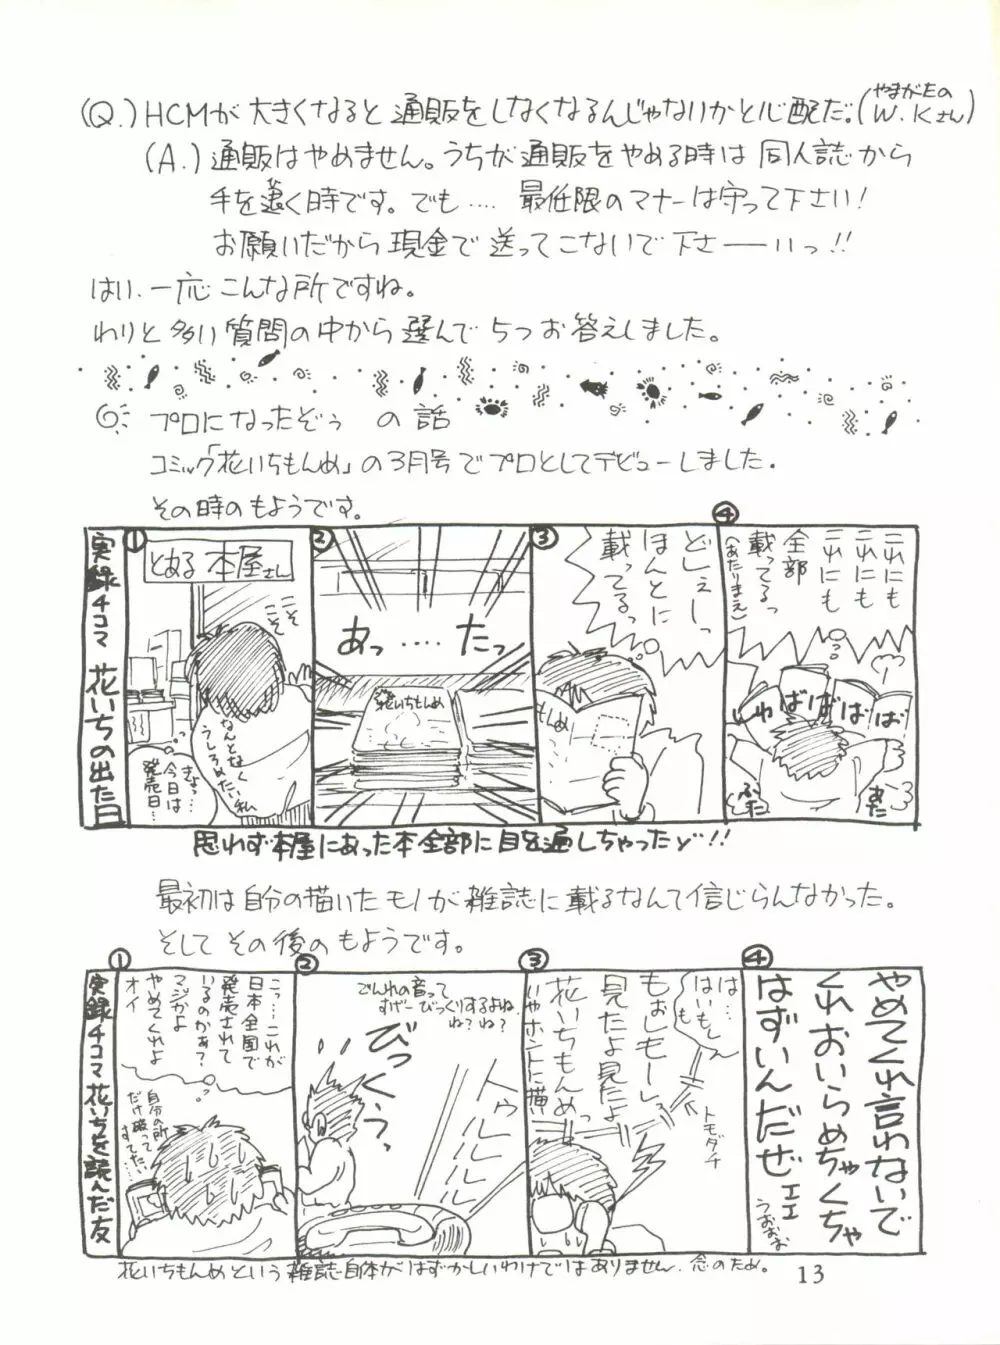 (Q.) HCMが大きくなると通販をしなくなるんじゃないかと心配だ。(やまがたの W.Kさん)
(A.) 通販はやめません。うちが通販をやめる時は同人誌から
手を退く時です。でも‥‥最低限のマナーは守って下さい!
お願いだから現金で送ってこないで下さーいっ!!
はい、一応こんな所ですね。
わりと多い質問の中から選んで5つお答えしました。
◎ プロになったぞぅ の話
コミック「花いちもんめ」の3月号でプロとしてデビューしました。
その時のもようです。
実録4コマ 花いちの出た日
①
とある本屋さん
こそこそ
なんとなく
うしろめたい私
きょ…
今日は
発売日…
②
あっ‥‥たっ
花いちもんめ
③
どしぇーっ
ほんとに
載ってるっ
もんめ
④
これにも
これにも
これにも
全部
載ってるっ
(あたりまえ)
ばばばば
あたふた
思わず本屋にあった本全部に目を通しちゃったッ!!
最初は自分の描いたモノが雑誌に載るなんて信じらんなかった。
そして その後のもようです。
実録4コマ 花いちを読んだ友
①
こっ…これが
日本全国で
発売されて
いるのかぁ?
マジかよ
やめてくれよ
オイ
自分の所
だけ破って
すてたい…
②
でんわの音って
すげーびっくりするよね。
ね?ね?
びっくぅっ
トゥルルルルル
③
は…はいもしもし
もぉしもーしっ
見たよ見たよ
花いちもんめっ
いやホントに描い
トモダチ
④
やめてくれ言わないで
くれおいらめちゃくちゃ
はずいんだぜェェ
うおおお
花いちもんめという雑誌自体がはずかしいわけではありません。念のため。
13